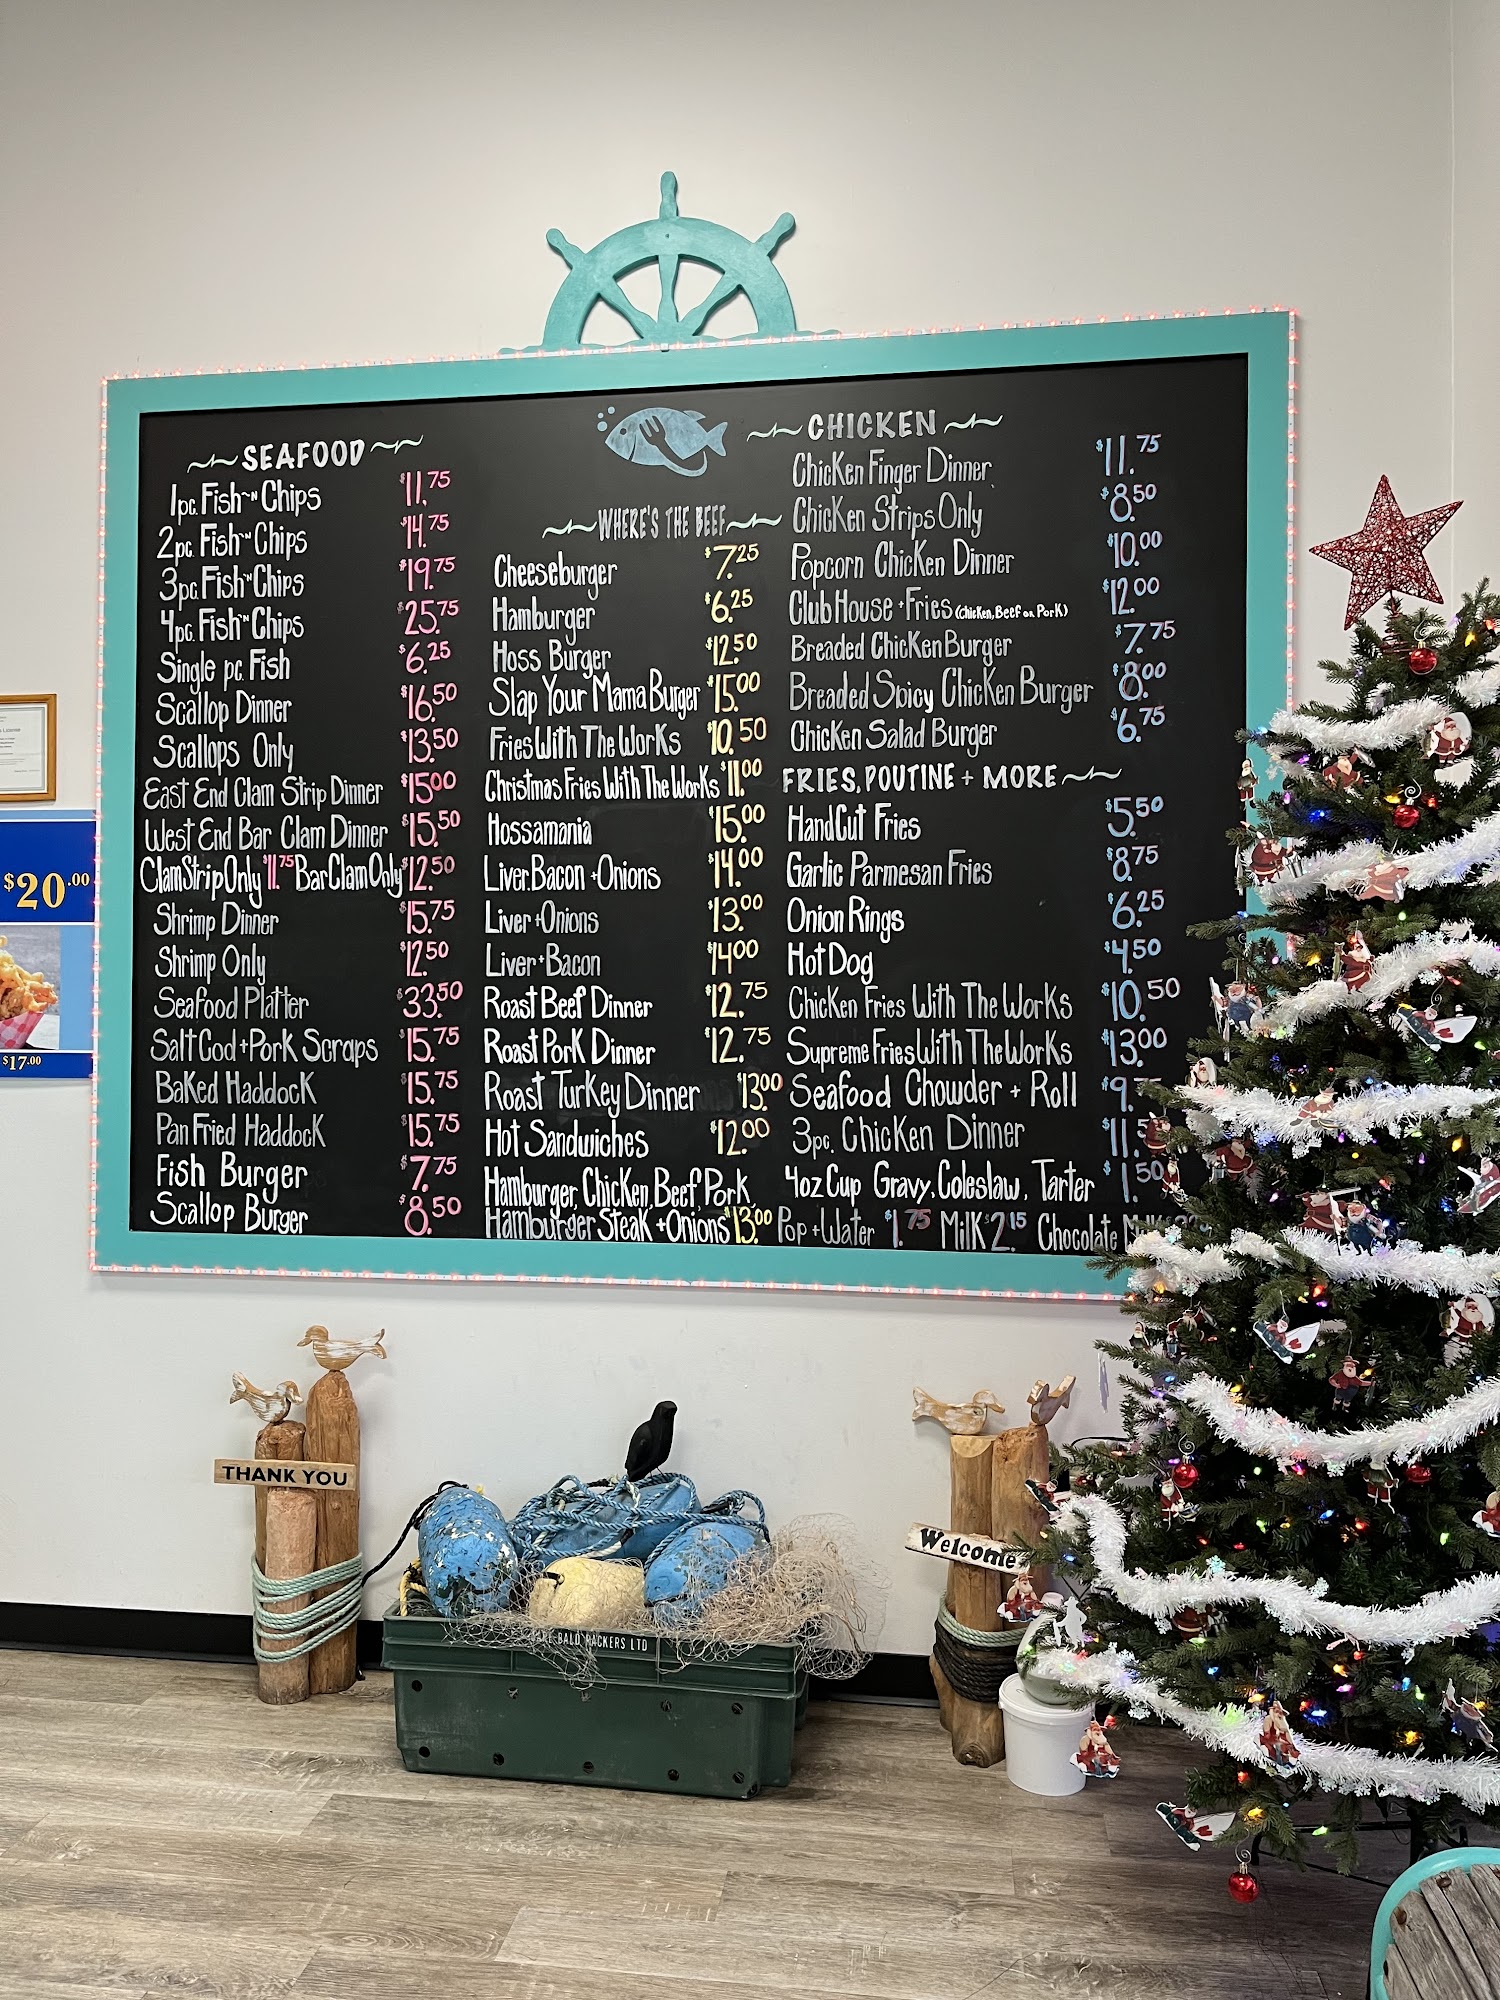 SEAFOOD
1pc. Fish~N Chips $11.75
2pc. Fish~N Chips $14.75
3pc. Fish~N Chips $19.75
4pc. Fish~N Chips $25.75
Single pc. Fish $6.25
Scallop Dinner $16.50
Scallops Only $13.50
East End Clam Strip Dinner $15.00
West End Bar Clam Dinner $15.50
Clam Strip Only $11.75 Bar Clam Only $12.50
Shrimp Dinner $15.75
Shrimp Only $12.50
Seafood Platter $33.50
Salt Cod + Pork Scraps $15.75
Baked Haddock $15.75
Pan Fried Haddock $15.75
Fish Burger $7.75
Scallop Burger $8.50
WHERE'S THE BEEF
Cheeseburger $7.25
Hamburger $6.25
Hoss Burger $12.50
Slap Your Mama Burger $15.00
Fries With The Works $10.50
Christmas Fries With The Works $11.00
Hossamania $15.00
Liver. Bacon + Onions $14.00
Liver + Onions $13.00
Liver + Bacon $14.00
Roast Beef Dinner $12.75
Roast Pork Dinner $12.75
Roast Turkey Dinner $13.00
Hot Sandwiches $12.00
Hamburger, Chicken, Beef, Pork
Hamburger Steak + Onions $13.00
CHICKEN
Chicken Finger Dinner $11.75
Chicken Strips Only $8.50
Popcorn Chicken Dinner $10.00
Club House + Fries (Chicken, Beef or Pork) $12.00
Breaded Chicken Burger $7.75
Breaded Spicy Chicken Burger $8.00
Chicken Salad Burger $6.75
FRIES, POUTINE + MORE
Hand Cut Fries $5.50
Garlic Parmesan Fries $8.75
Onion Rings $6.25
Hot Dog $4.50
Chicken Fries With The Works $10.50
Supreme Fries With The Works $13.00
Seafood Chowder + Roll $9.
3pc. Chicken Dinner $11.5
4oz Cup Gravy, Coleslaw, Tarter $1.50
Pop + Water $1.75 Milk $2.15 Chocolate
$20.00
$17.00
THANK YOU
Welcome
BALD PACKERS LTD